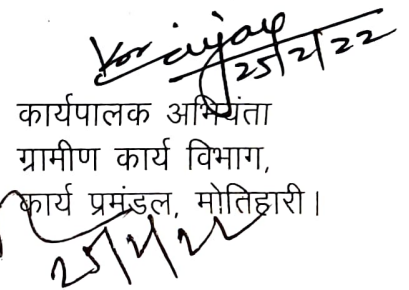 25/2/22
कार्यपालक अभियंता
ग्रामीण कार्य विभाग,
कार्य प्रमंडल, मोतिहारी।